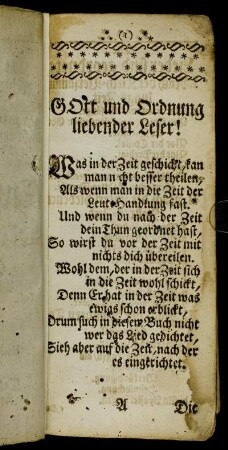 (1)
GOtt und Ordnung
liebender Leser!
Was in der Zeit geschickt, kan
man nicht besser theilen,
Als wenn man in die Zeit der
Leut Handlung fast.
Und wenn du nach der Zeit
dein Thun geordnet hast,
So wirst du vor der Zeit mit
nichts dich übereilen.
Wohl dem, der in der Zeit sich
in die Zeit wohl schickt,
Denn Er hat in der Zeit was
ewigs schon erblickt,
Drum such in diesem Buch nicht
wer das Lied gedichtet,
Sieh aber auf die Zeit, nach der
es eingerichtet.
A Die